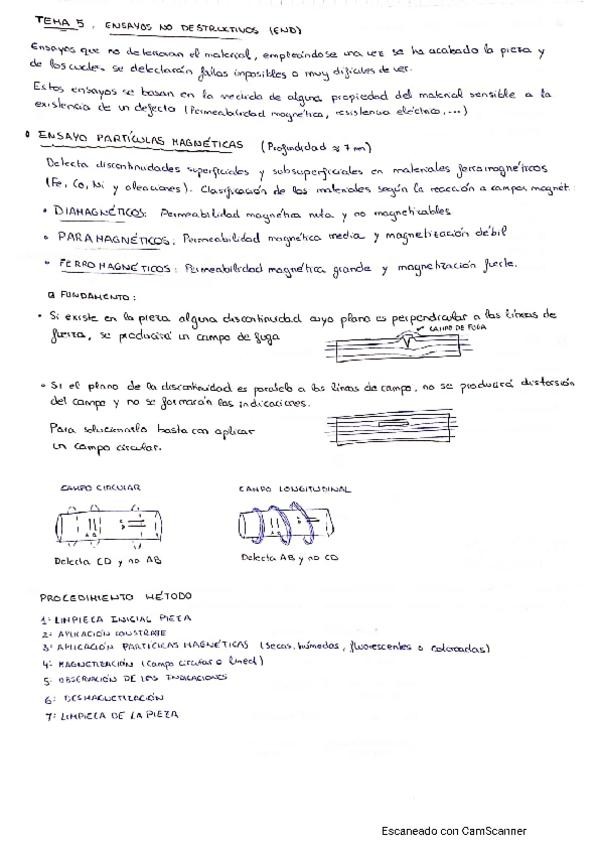 TEMA 5. ENSAYOS NO DESTRUCTIVOS (END)
Ensayos que no deterioran el material, empleándose una vez se ha acabado la pieza y
de los cuales se detectarán fallos imposibles o muy difíciles de ver.
Estos ensayos se basan en la medida de alguna propiedad del material sensible a la
existencia de un defecto (Permeabilidad magnética, resistencia eléctrica, ...)
ENSAYO PARTÍCULAS MAGNÉTICAS (Profundidad ≈ 7 mm)
Detecta discontinuidades superficiales y subsuperficiales en materiales ferromagnéticos
(Fe, Co, Ni y aleaciones). Clasificación de los materiales según la reacción a campos magnét.
• DIAMAGNÉTICOS: Permeabilidad magnética nula y no magnetizables
• PARAMAGNÉTICOS: Permeabilidad magnética media y magnetización débil
• FERROMAGNÉTICOS: Permeabilidad magnética grande y magnetización fuerte.
FUNDAMENTO:
• Si existe en la pieza alguna discontinuidad cuyo plano es perpendicular a las líneas de
fuerza, se producirá un campo de fuga
CAMPO DE FUGA
• Si el plano de la discontinuidad es paralelo a las líneas de campo, no se producirá distorsión
del campo y no se formarán las indicaciones.
Para solucionarlo basta con aplicar
un campo circular.
CAMPO CIRCULAR
CAMPO LONGITUDINAL
Detecta CD y no AB
Detecta AB y no CD
PROCEDIMIENTO MÉTODO
1: LIMPIEZA INICIAL PIEZA
2: APLICACIÓN
3: APLICACIÓN PARTÍCULAS MAGNÉTICAS (Secas, húmedas, fluorescentes o coloreadas)
4: MAGNETIZACIÓN (Campo circular o lineal)
5: OBSERVACIÓN DE LAS INDICACIONES
6: DESMAGNETIZACIÓN
7: LIMPIEZA DE LA PIEZA
Escaneado con CamScanner